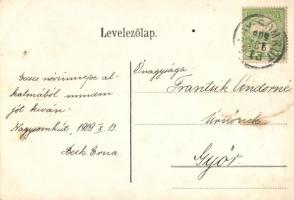 Levelezőlap.
Becses névünnepe al-
kalmából minden
jót kíván
Nagyomkút, 1909 X. 13.
Deik Erna
Őnagysága
Frantsik Andorné
úrnőnek
Győr.